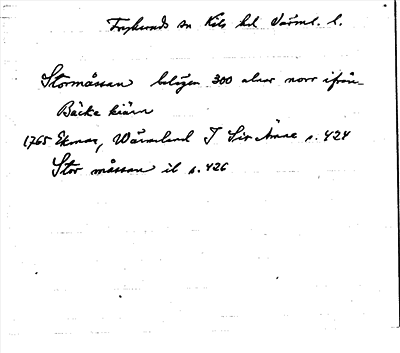 Fryksände sn Kils hd Värml. l.
Stormåssan belägen 300 alnar norr ifrån
Bäcke kiärn
1765 Ekman, Wärmeland I Sir Änne s. 424
Stor måssan ib s. 426